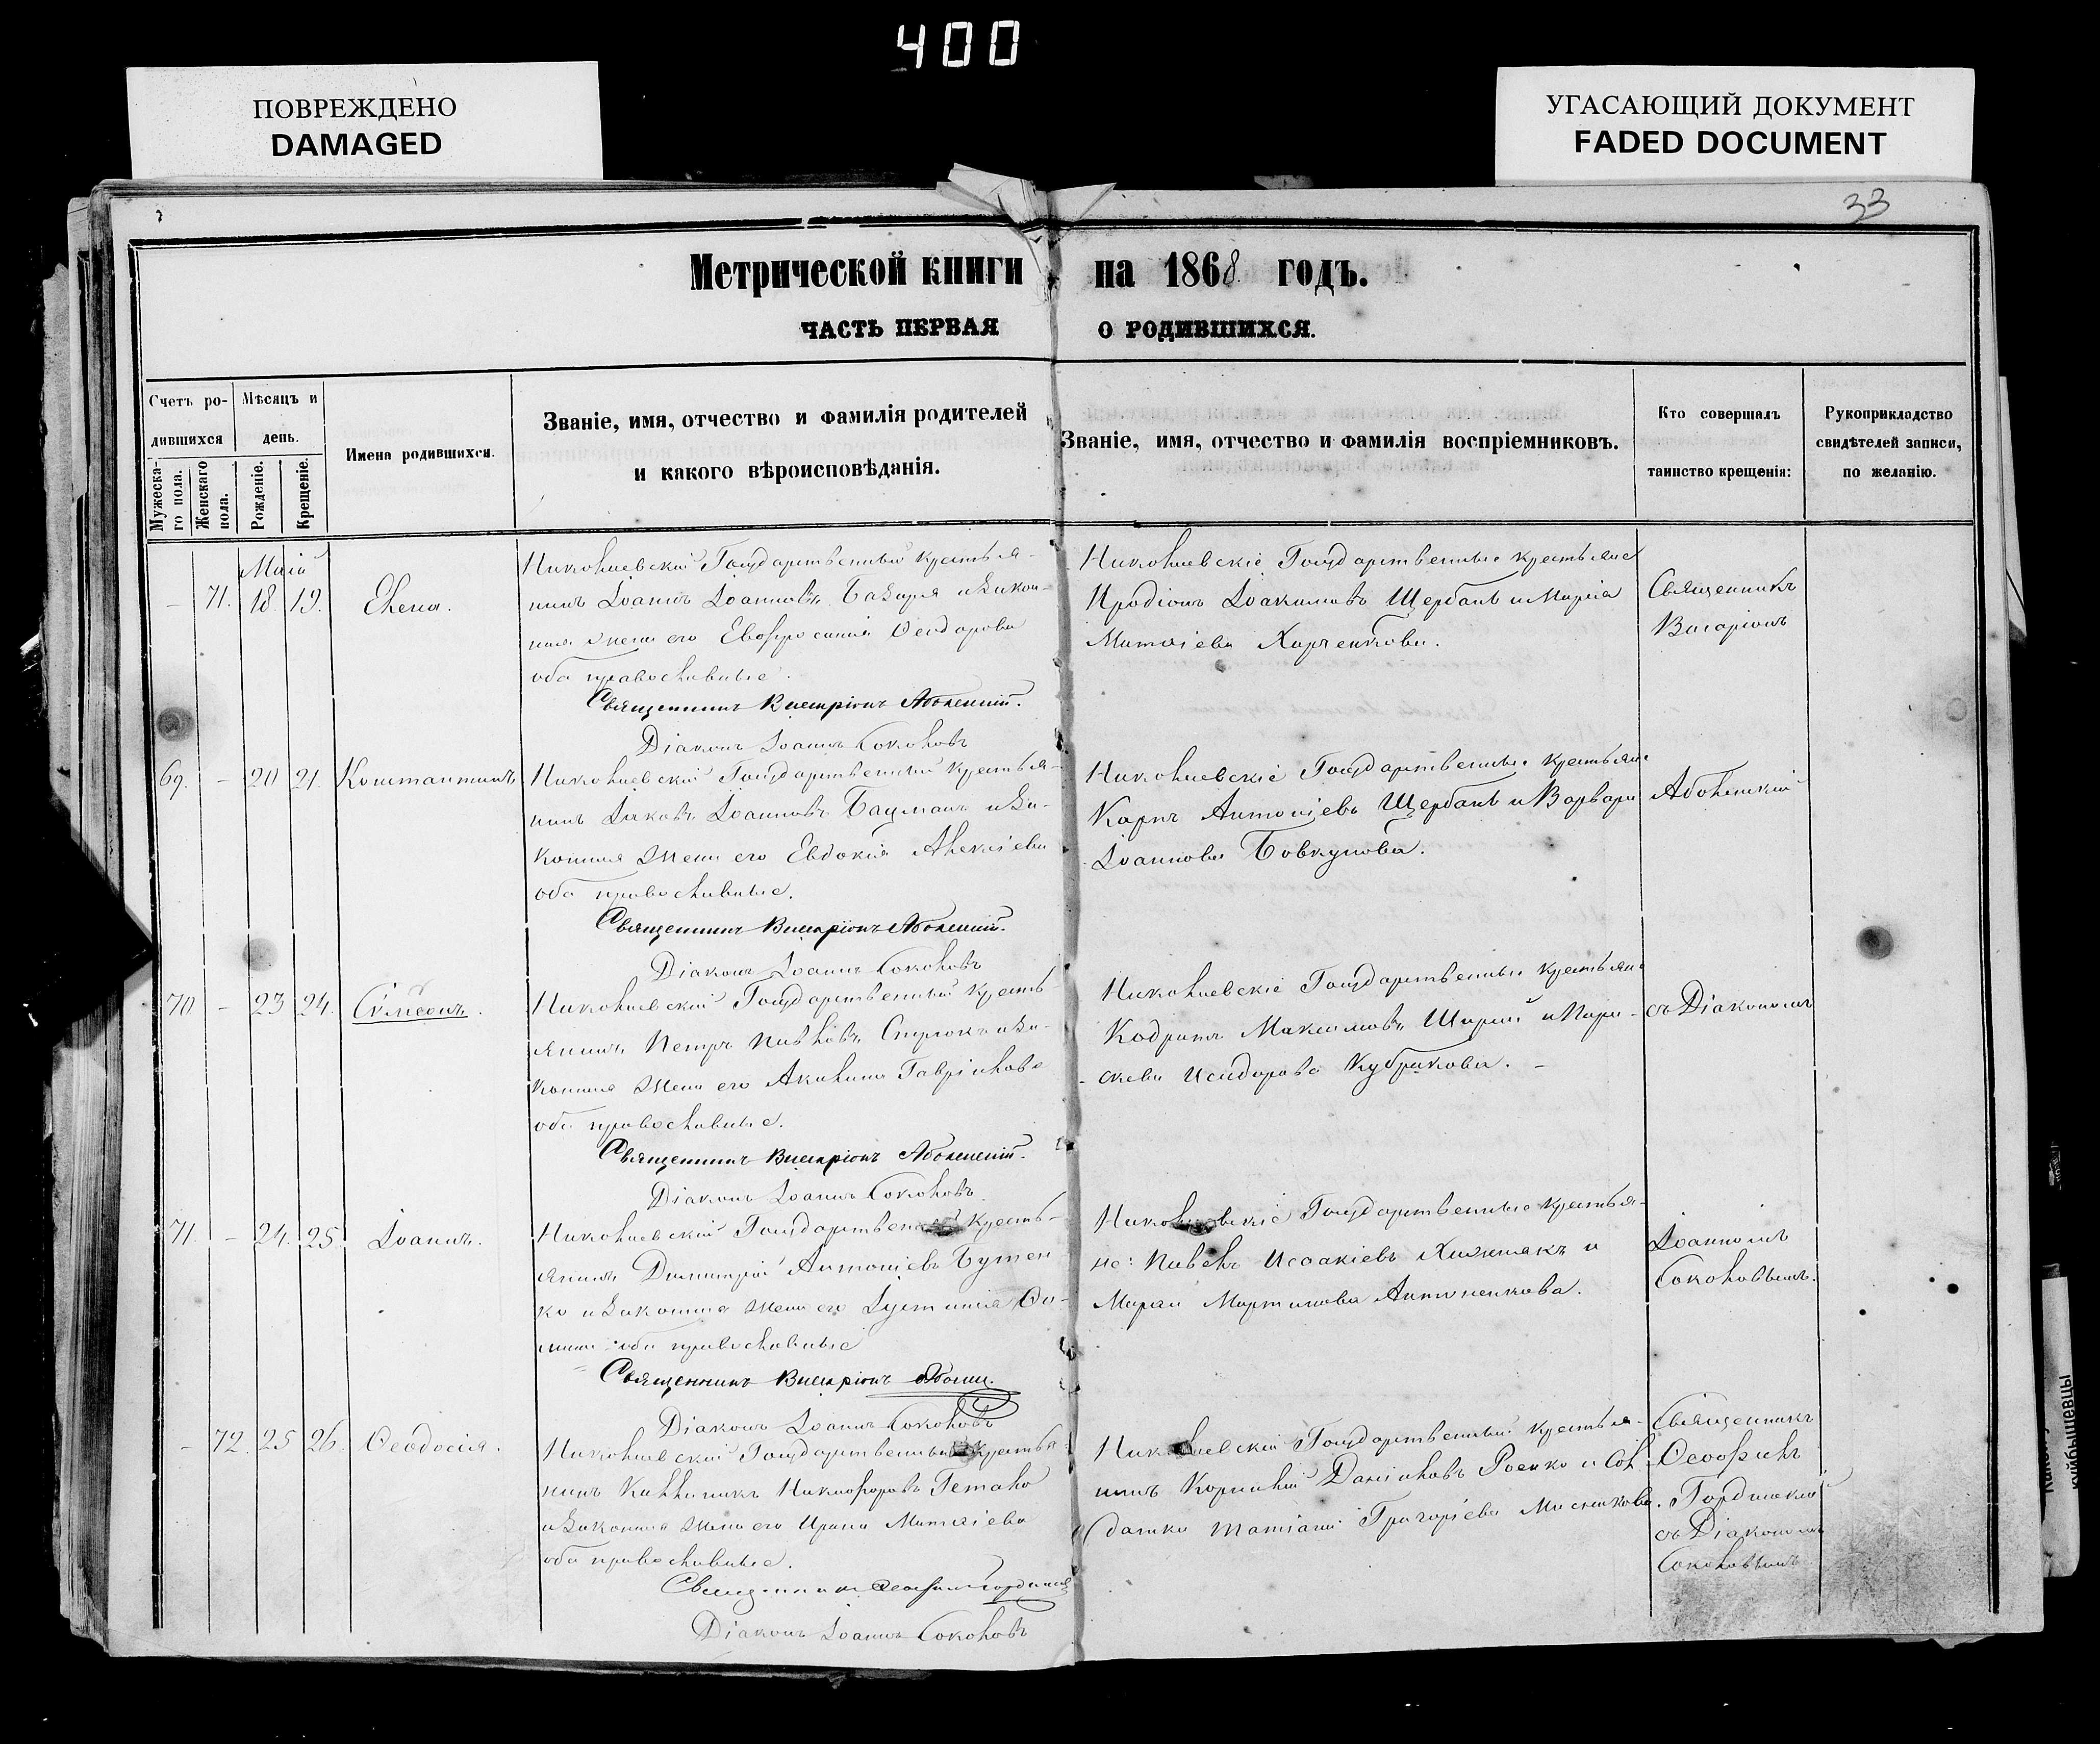 400
ПОВРЕЖДЕНО
DAMAGED
УГАСАЮЩИЙ ДОКУМЕНТ
FADED DOCUMENT
33
Метрической книги на 1868 годъ.
ЧАСТЬ ПЕРВАЯ О РОДИВШИХСЯ.
Счетъ ро-
дившихся
Мужеска-
го пола.
Женскаго
пола.
Мѣсяцъ и
день.
Рожденіе.
Крещеніе.
Имена родившихся.
Званіе, имя, отчество и фамилія родителей
и какого вѣроисповѣданія.
Званіе, имя, отчество и фамилія воспріемниковъ.
Кто совершалъ
таинство крещенія:
Рукоприкладство
свидѣтелей записи,
по желанію.
Маій
– 71. 18. 19. Елена.
Николаевскій Государственный крестья-
нинъ Іоаннъ Іоанновъ и закон-
ная жена его Евфросинія Ѳеодорова
оба православные.
Священникъ Виссаріонъ
Діаконъ Іоаннъ Соколовъ
Николаевскіе Государственные крестьяне
Иродіонъ Іоакимовъ Щербакъ и Марія
Матвіева Харченкова.
Священникъ
Висаріонъ
69. – 20 21. Константинъ
Николаевскій Государственный крестья-
нинъ Іаковъ Іоанновъ Бацманъ и за-
конная жена его Евдокія Алексіева
оба православные.
Священникъ Виссаріонъ
Діаконъ Іоаннъ Соколовъ
Николаевскіе Государственные крестьяне
Карпъ Антоніевъ Щербакъ и Варвара
Іоаннова Бовкунова.
70. – 23 24. Сѵмеонъ.
Николаевскій Государственный кресть-
янинъ Петръ Павловъ и за-
конная жена его Акилина Гавріилова
оба православные.
Священникъ Виссаріонъ
Діаконъ Іоаннъ Соколовъ.
Николаевскіе Государственные крестьяне
Кодратъ Максимовъ Шарай и Пара-
скева Исидорова Кубракова. –
съ Діакономъ
71. – 24. 25. Іоаннъ.
Николаевскій Государственный кресть-
янинъ Димитрій Антоніевъ Бутен
ко и законная жена его Іустинія Ѳо-
мина оба православные
Священникъ Виссаріонъ
Діаконъ Іоаннъ Соколовъ
Николаевскіе Государственные крестья-
не: Павелъ Исаакіевъ Хижнякъ и
Мартинова Антоненкова.
Іоанномъ
Соколовымъ.
– 72. 25 26. Ѳеодосія.
Николаевскій Государственный крестья-
нинъ Каллиникъ Никифоровъ Гетало
и законная жена его Ирина Матвіева
оба православные.
Священникъ
Діаконъ Іоаннъ Соколовъ
Николаевскій Государственный крестья-
нинъ Корнилій Даніиловъ Роенко и Сол
датка Григоріева
Священникъ
Ѳеофилъ
съ Діакономъ
Соколовымъ
куйбышевцы